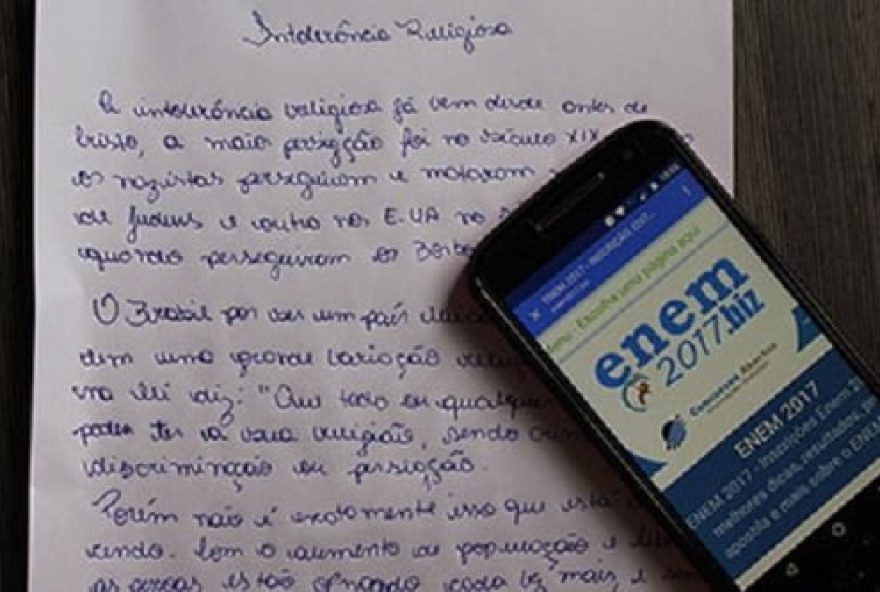 Intolerância Religiosa
A intolerância religiosa já vem desde antes de
Cristo, a maio persigção foi no século XIX
os nazistas perseguiram e mataram
de Judeus e outro nos E.UA no
quando perseguiram os
O Brasil por ser um país
dem uma grande variação
na lei diz: "Que todo ou qualquer
poder ter a sua religião, sendo crime
discriminação ou persigção.
Porém não é exatamente isso que está
rendo. Com o aumento da população e
as pessoas estão opinando cada vez mais, e
ENEM 2017 - INSCRIÇÃO 201...
Menu - Escolha uma página aqui
enem
2017.biz
Concursos Abertos
ENEM 2017
ENEM 2017 - Inscrições Enem
melhores dicas, resultados,
apostila e mais sobre o ENEM